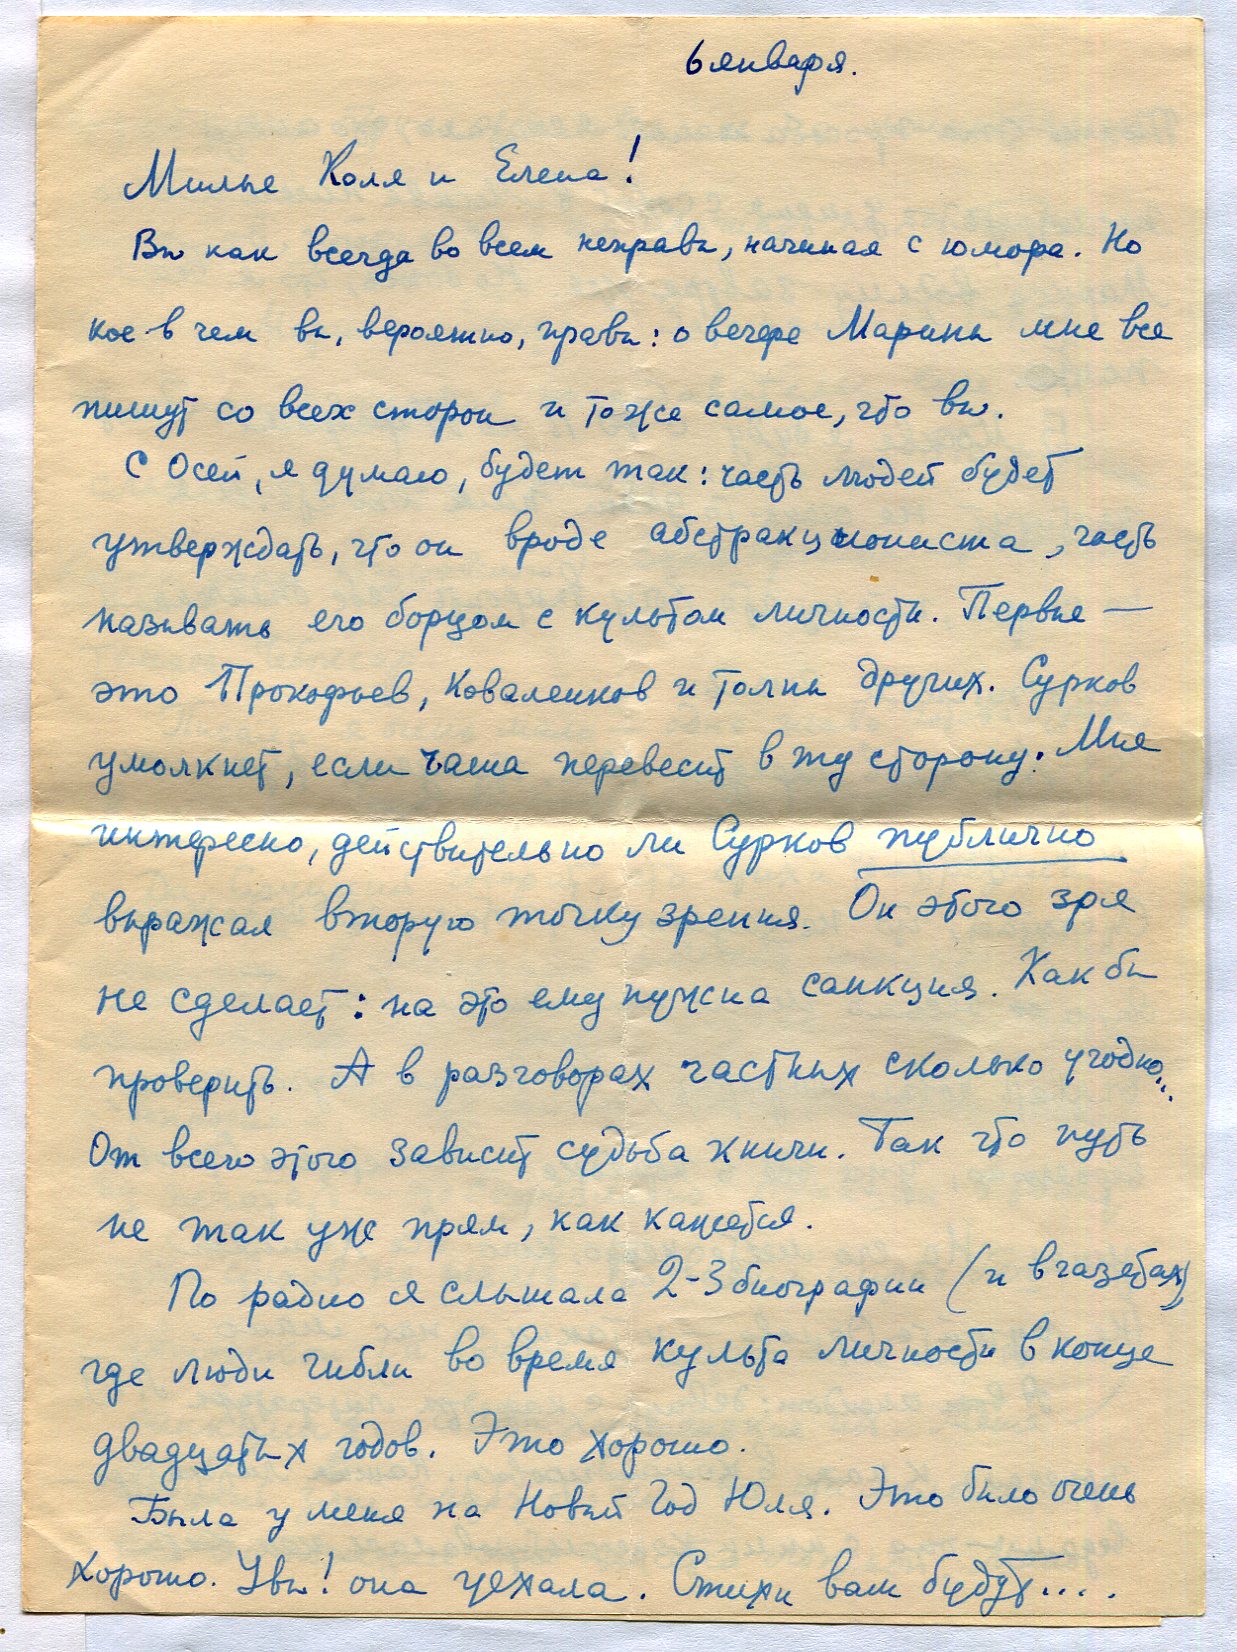 6 января.
Милые Коля и Елена!
Вы как всегда во всем неправы, начиная с юмора. Но
кое в чем вы, вероятно, правы: о вечере Марины мне все
пишут со всех сторон и то же самое, что вы.
С Осей, я думаю, будет так: часть людей будет
утверждать, что он вроде абстракциониста, часть
называть его борцом с культом личности. Первые —
это Прокофьев, Коваленков и толпы других. Сурков
умолкнет, если чаша перевесит в ту сторону. Мне
интересно, действительно ли Сурков публично
выражал вторую точку зрения. Он этого зря
не сделает: на это ему нужна санкция. Как бы
проверить. А в разговорах частных сколько угодно...
От всего этого зависит судьба книги. Так что путь
не так уже прям, как кажется.
По радио я слышала 2-3 биографии (и в газетах)
где люди гибли во время культа личности в конце
двадцатых годов. Это хорошо.
Была у меня на Новый Год Юля. Это было очень
хорошо. Увы! она уехала. Стихи вам будут....